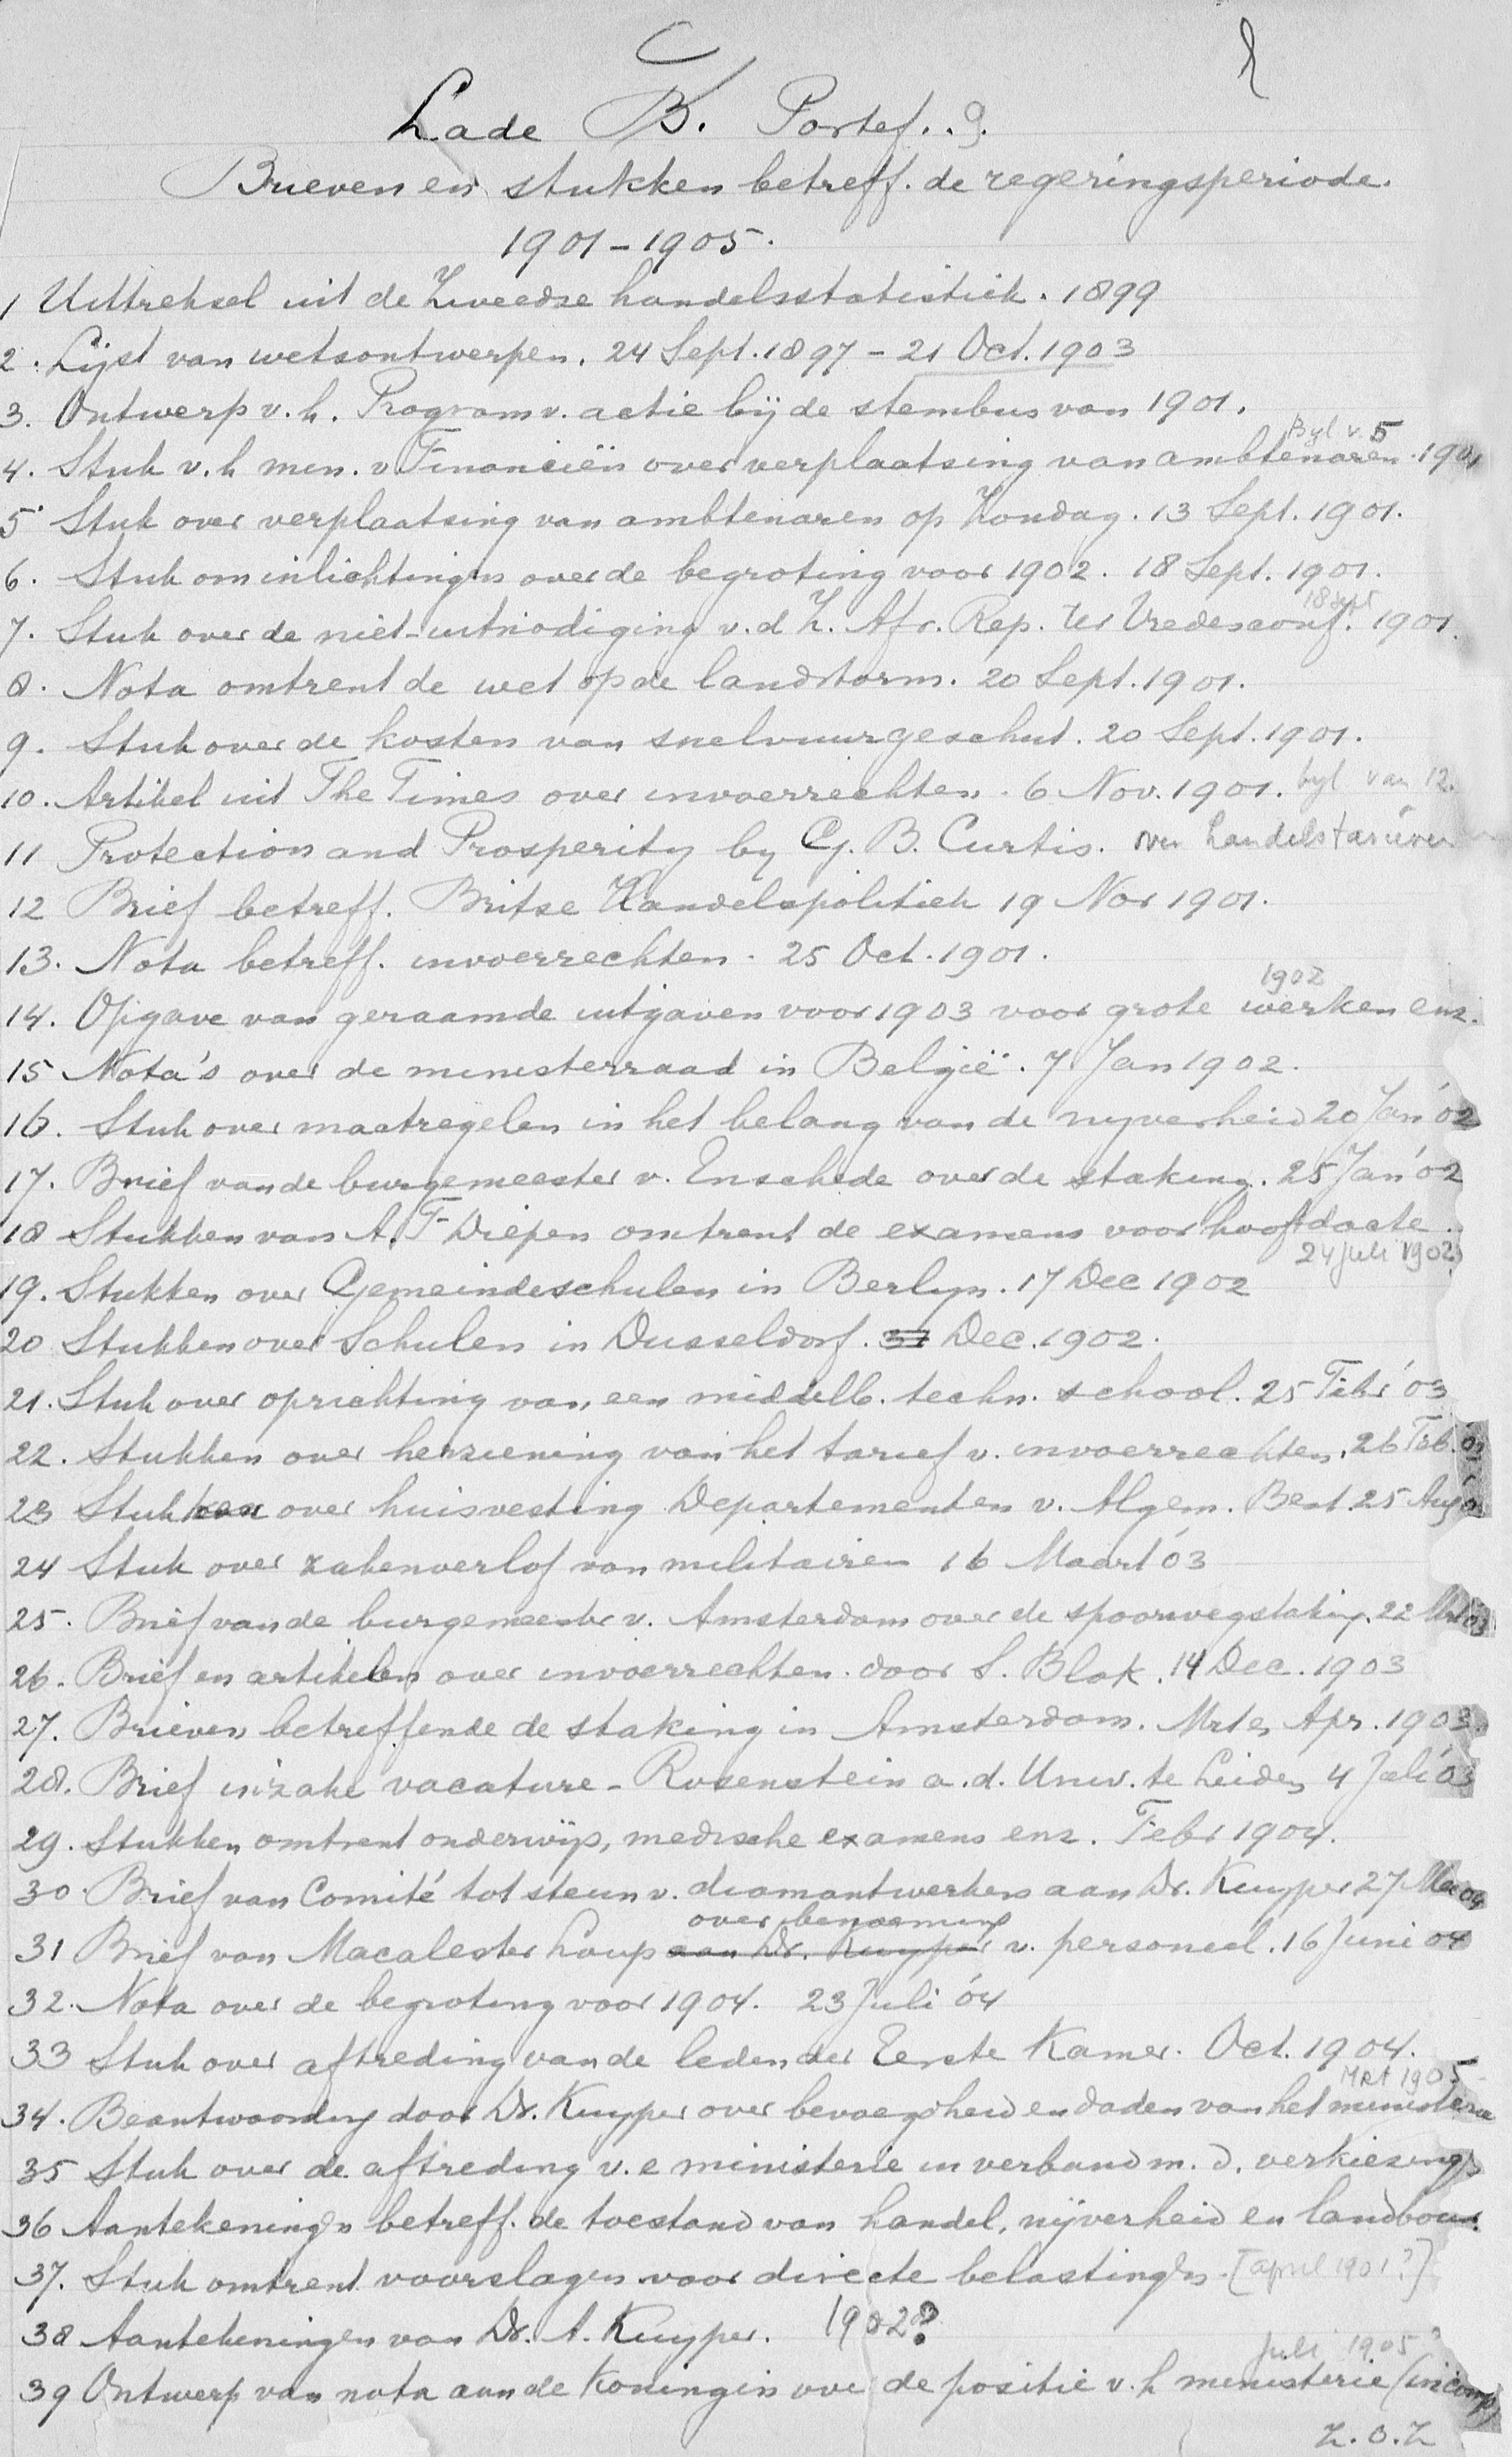 C
Lade B. Portef. 9.
Brieven en stukken betreff. de regeringsperiode.
1901-1905.
1 Uittreksel uit de Zweedse handelsstatistiek. 1899
2. Lijst van wetsontwerpen. 24 Sept. 1897 - 21 Oct. 1903
3. Ontwerp v. h. Program v. actie bij de stembus van 1901.
Byl v. 5
4. Stuk v. h min. v Financiën over verplaatsing van ambtenaren. 1901
5 Stuk over verplaatsing van ambtenaren op Zondag. 13 Sept. 1901.
6. Stuk om inlichtingen over de begroting voor 1902. 18 Sept. 1901.
18 Sept
7. Stuk over de niet-uitnodiging v. d Z. Afr. Rep. ter Vredesconf. 1901.
8. Nota omtrent de wet op de landstorm. 20 Sept. 1901.
9. Stuk over de kosten van snelvuurgeschut. 20 Sept. 1901.
10. Artikel uit The Times over invoerrechten. 6 Nov. 1901. byl van 12.
11 Protection and Prosperity by G. B. Curtis. over handelstarieven
12 Brief betreff. Britse Handelspolitiek 19 Nov 1901.
13. Nota betreff. invoerrechten. 25 Oct. 1901.
1902
14. Opgave van geraamde uitgaven voor 1903 voor grote werken enz.
15 Nota's over de ministerraad in België. 7 Jan 1902.
16. Stuk over maatregelen in het belang van de nyverheid 20 Jan '02
17. Brief van de burgemeester v. Enschede over de staking. 25 Jan '02
18 Stukken van A. F Diepen omtrent de examens voor hoofdacte.
24 juli 1902
19. Stukken over Gemeindeschulen in Berlyn. 17 Dec 1902
20 Stukken over Schulen in Dusseldorf. 31 Dec. 1902.
21. Stuk over oprichting van een middelb. techn. school. 25 Febr '03
22. Stukken over herziening van het tarief v. invoerrechten. 26 Feb. 03
23 Stukken over huisvesting Departementen v. Algem. Best. 25 Aug
24 Stuk over zakenverlof van militairen 16 Maart '03
25. Brief van de burgemeester v. Amsterdam over de spoorwegstaking. 22 Mrt 03
26. Brief en artikelen over invoerrechten. door S. Blok. 14 Dec. 1903
27. Brieven betreffende de staking in Amsterdam. Mrt en Apr. 1903.
28. Brief inzake vacature - Rosenstein a. d. Univ. te Leiden 4 Juli '03
29. Stukken omtrent onderwijs, medische examens enz. Febr 1904.
30. Brief van Comité tot steun v. diamantwerkers aan Dr. Kuyper 27 Mei 04
over benoeming
31 Brief van Macalester Loup aan Dr. Kuyper v. personeel. 16 Juni 04
32. Nota over de begroting voor 1904. 23 Juli '04
33 Stuk over aftreding van de leden der Eerste Kamer. Oct. 1904.
Mrt 1905
34. Beantwoording door Dr. Kuyper over bevoegdheid en daden van het ministerie
35 Stuk over de aftreding v. e ministerie in verband m. d. verkiezing
36 Aantekeningen betreff. de toestand van handel, nijverheid en landbouw.
37. Stuk omtrent voorslagen voor directe belastingen. [april 1901?]
38 Aantekeningen van Dr. A. Kuyper. 1902?
Juli 1905?
39 Ontwerp van nota aan de Koningin over de positie v. h ministerie (incomp)
Z.O.Z